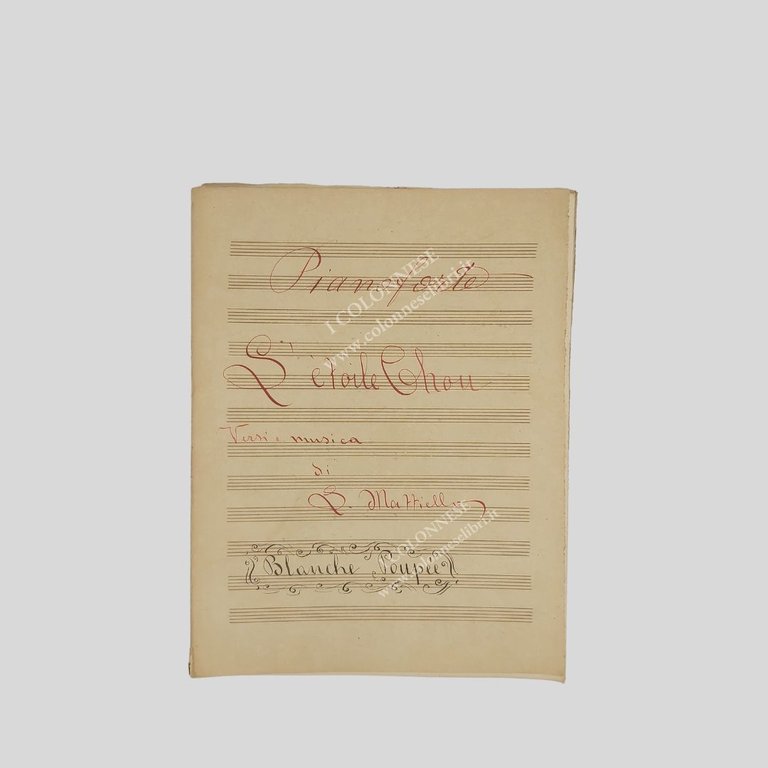 Pianoforte
L'étoile Chou
Versi e musica
di
L. Mattiello
Blanche Poupée
I COLONNESE
www.colonneselibri.it
I COLONNESE
www.colonneselibri.it